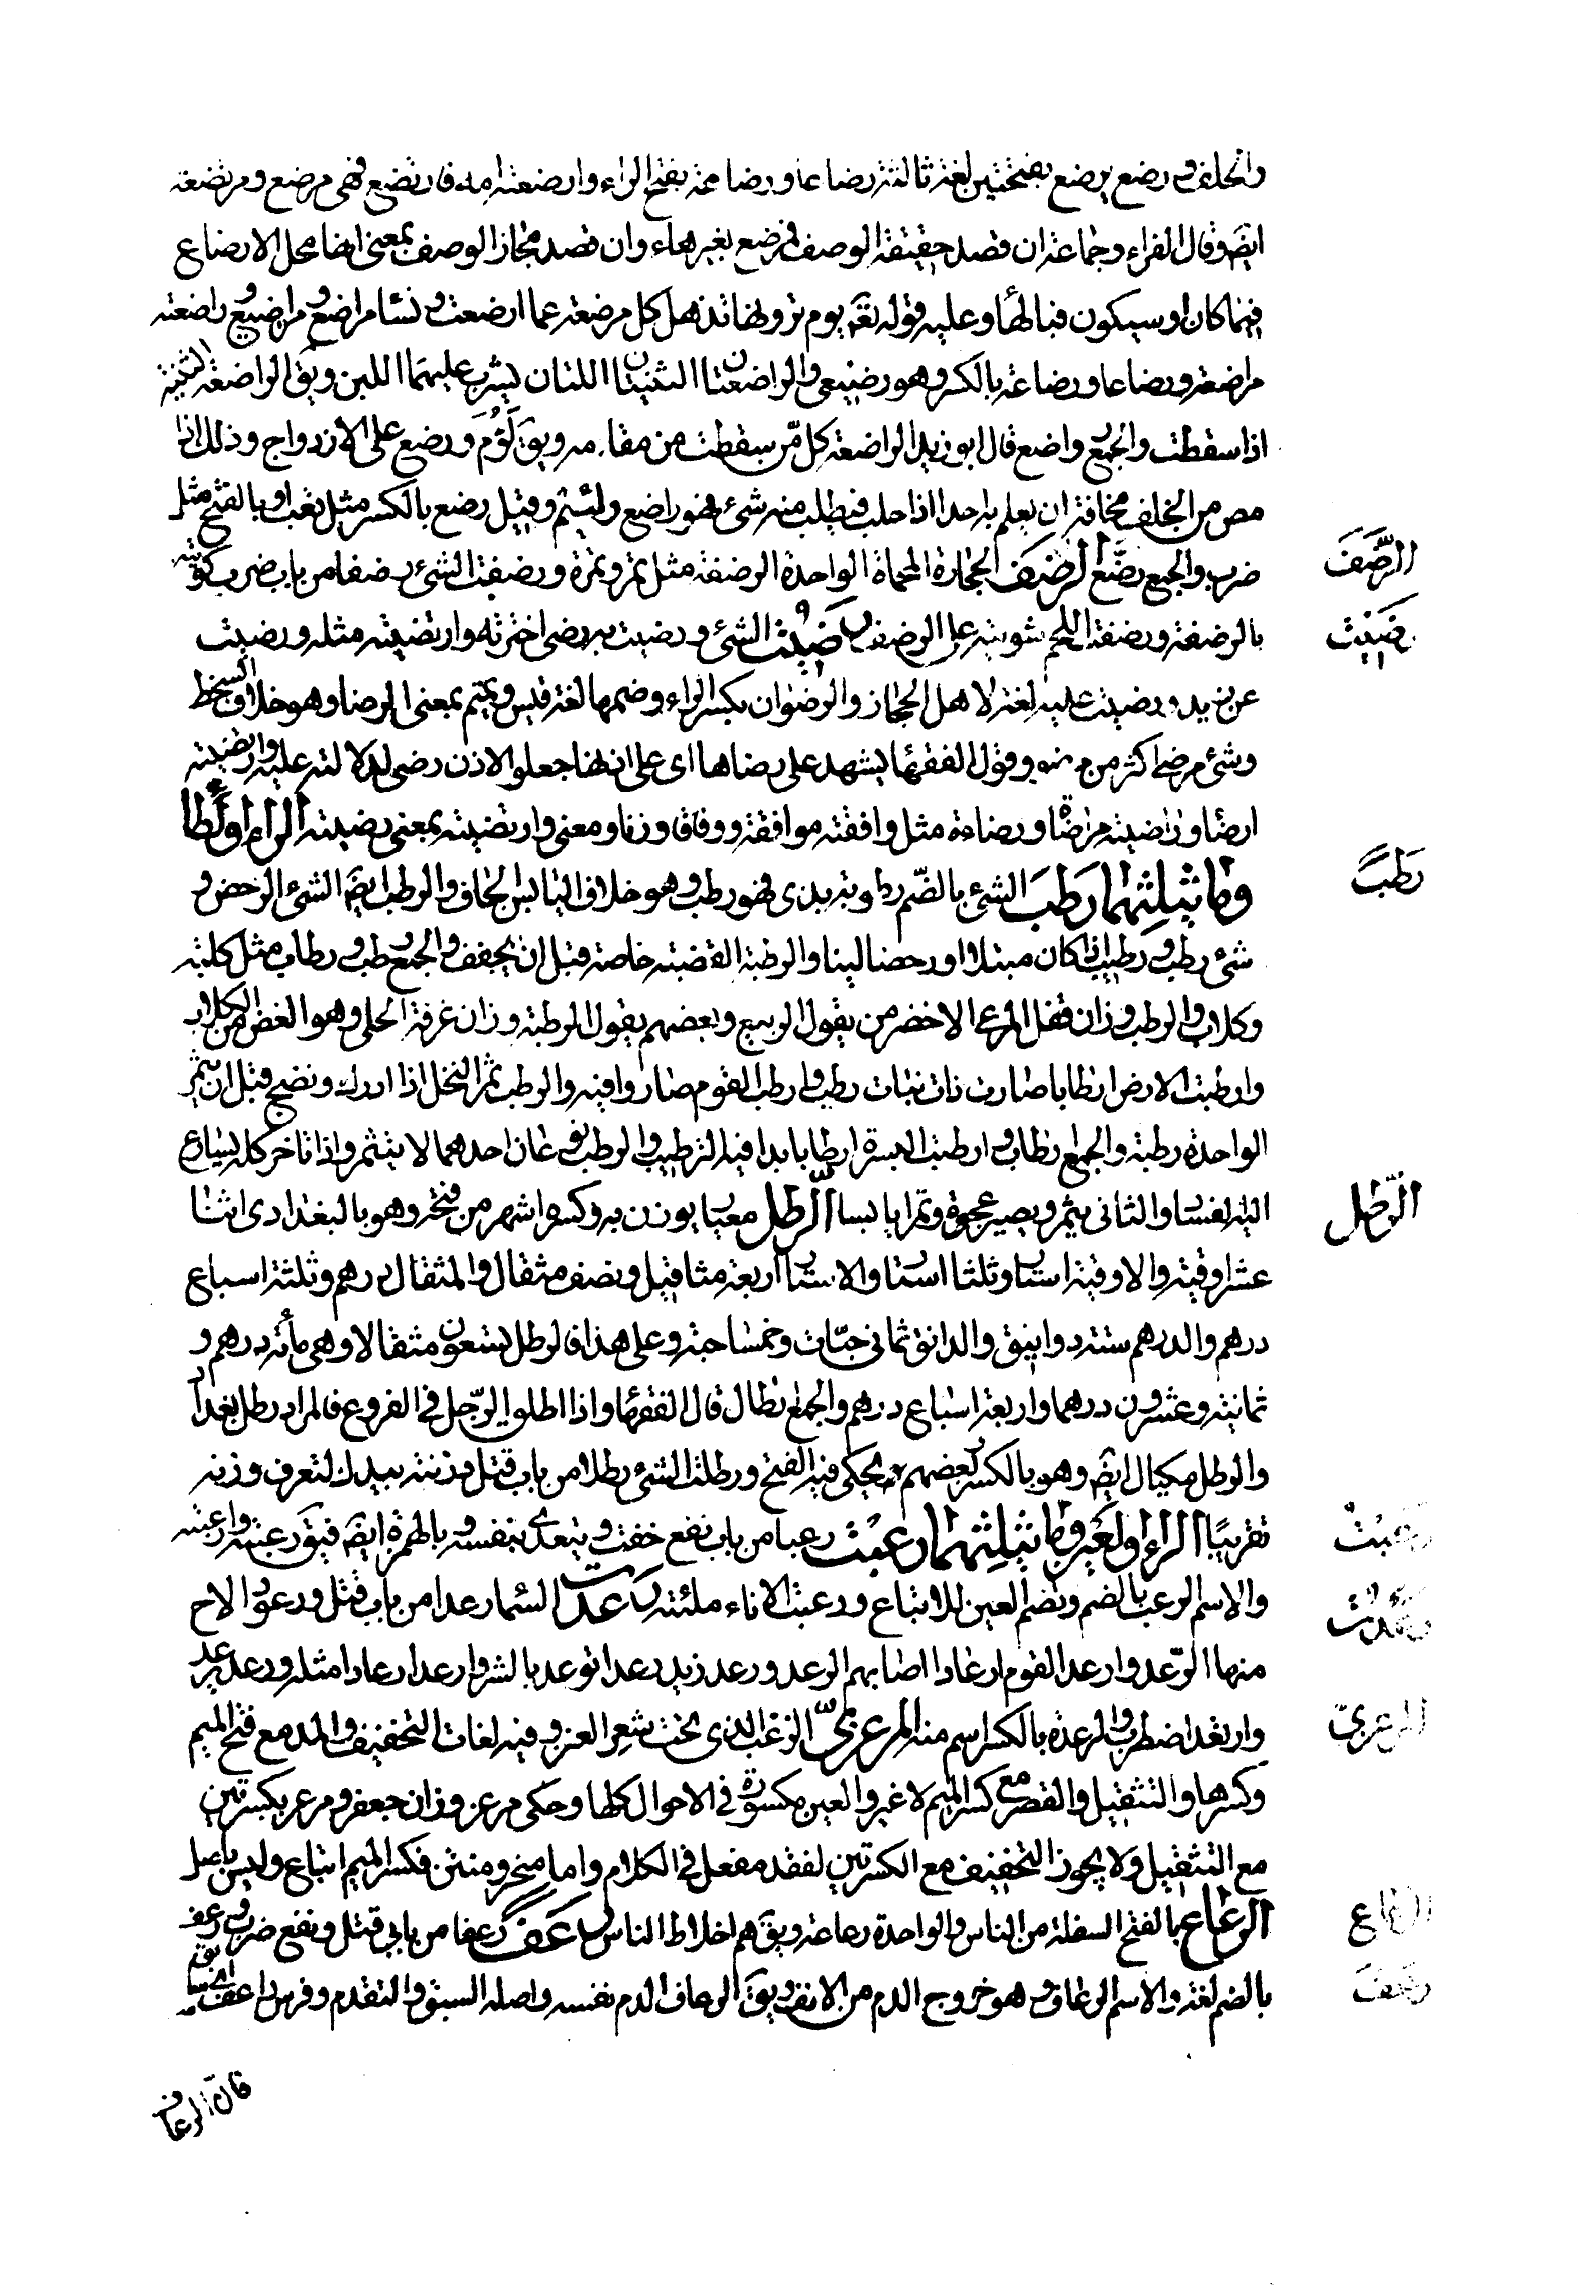 والخلف و رضع يرضع بفتحتين لغة ثالثة رضاعا و رضاعة بفتح الراء و ارضعته امه فارتضع فهي مرضع و مرضعة
ايضَ و قال الفراء و جماعة ان قصد حقيقة الوصف فمرضع بغير هاء و ان قصد مجاز الوصف بمعنى انها محل الارضاع
فيما كان او سيكون فبالهاء و عليه قوله تعَم يوم ترونها تذهل كل مرضعة عما ارضعت و نساء مراضع و مراضيع و راضعته
مراضعة و رضاعا و رضاعة بالكسر و هو رضيعي و الراضعتان الثنيتان اللتان يشرب عليهما اللبن و يقَ الراضعة الثنية
اذا سقطت و الجمع رواضع قال ابو زيد الراضعة كل سن سقطت من مقاد مه و يقَ لَؤُمَ و رضع على الازدواج و ذلك اذا
مص من الخلف مخافة ان يعلم به احد اذا حلب فيطلب منه شئ فهو راضع و لئيم و قيل رضع بالكسر مثل تعب او بالفتح مثل
ضرب و الجمع رضّع الرضف الحجارة المحماة الواحدة الرضفة مثل تمر و تمرة و رضفت الشئ رضفا من باب ضرب كويته
بالرضفة و رضفت اللحم شويته على الرضف رضيت الشئ و رضيت به رضى اخترته و ارتضيته مثله و رضيت
عن زيد و رضيت عليه لغة لاهل الحجاز و الرضوان بكسر الراء و ضمها لغة قيس و تميم بمعنى الرضا و هو خلاف السخط
و شئ مرضي اكثر من مرضو و قول الفقهاء يشهد على رضاها اى على اذنها جعلوا الاذن رضى لدلالته عليه و ارضيته
ارضاء و راضيته مراضاة و رضاءة مثل وافقته موافقة و وفاق وزنا و معنى و ارتضيته بمعنى رضيته الراء و الطاء
و ما يثلثهما رطب الشئ بالضّم رطوبة ندى فهو رطب و هو خلاف اليابس الجاف و الرطب ايضَ الشئ الرخص و
شئ رطب و رطيب اذا كان مبتلا او رخصا لينا و الرطبة القضبة خاصة قبل ان يجفف و الجمع رطب و رطاب مثل كلبة
و كلاب و الرطب وزان قفل المرعى الاخضر من بقول الربيع و بعضهم يقول الرطبة وزان غرفة الخلى و هو الغض من الكلاء
و ارطبت الارض ارطابا صارت ذات نبات رطب و ارطب القوم صاروا فيه و الرطب ثمر النخل اذا ادرك و نضج قبل ان يتمر
الواحدة رطبة و الجمع ارطاب و ارطبت البسرة ارطابا بدا فيها الترطيب و الرطب نوعان احدهما لا يتتمر و اذا تاخر اكله يسارع
اليه الفساد و الثانى يتتمر و يصير عجوة و تمرا يابسا الرّطل معيار يوزن به و كسره اشهر من فتحه و هو بالبغدادى اثنا
عشر اوقية و الاوقية استار و ثلثا استار و الاستار اربعة مثاقيل و نصف مثقال و المثقال درهم و ثلثة اسباع
درهم و الدرهم ستة دوانيق و الدانق ثمانى حبّات و خمسا حبة و على هذا فالرطل تسعون مثقالا و هى مائة درهم و
ثمانية و عشرون درهما و اربعة اسباع درهم و الجمع ارطال قال الفقهاء و اذا اطلق الرّطل في الفروع فالمراد رطل بغداد
و الرطل مكيال ايضَ و هو بالكسر و بعضهم يحكى فيه الفتح و رطلت الشئ رطلا من باب قتل وزنته بيدك لتعرف وزنه
تقريبًا الراء و العَين و ما يثلثهما رعبت رعبا من باب نفع خفت و يتعدى بنفسه و بالهمزة ايضَ فيقَ رعبته و ارعبته
و الاسم الرعب بالضم و تضم العين للاتباع و رعبت الاناء ملئته رعدت السماء رعدا من باب قتل و رعودا لاح
منها الرّعد و ارعد القوم ارعادا اصابهم الرعد و رعد زيد رعدا توعد بالشر و ارعد ارعادا مثله و رعد يرعد
و ارتعد اضطرب و الرعدة بالكسر اسم منه المرعزىّ الزغب الذى تحت شعر العنز و فيه لغات التخفيف و المد مع فتح الميم
و كسرها و التثقيل و القصر مع كسر الميم لا غير و العين مكسورة في الاحوال كلها و حكى مرعز وزان جعفر و مرعز بكسرتين
مع التثقيل و لا يجوز التخفيف مع الكسرتين لفقد مفعل في الكلام و اما منخر و منتن فكسر الميم اتباع و ليس باصل
الرعاع بالفتح السفلة من الناس و الواحدة رعاعة و يقَ هم اخلاط الناس رعف رعفا من بابي قتل و نفع ضرب و رعف
بالضم لغة و الاسم الرعاف و هو خروج الدم من الانف و يقَ الرعاف الدم نفسه و اصله السبق و التقدم و فرس راعف اى سابق
الرَّضَف
رضيت
رطبَ
الرّطل
رعبت
رعدت
المرعزىّ
الرعاع
رعفَ
قال الرعاف